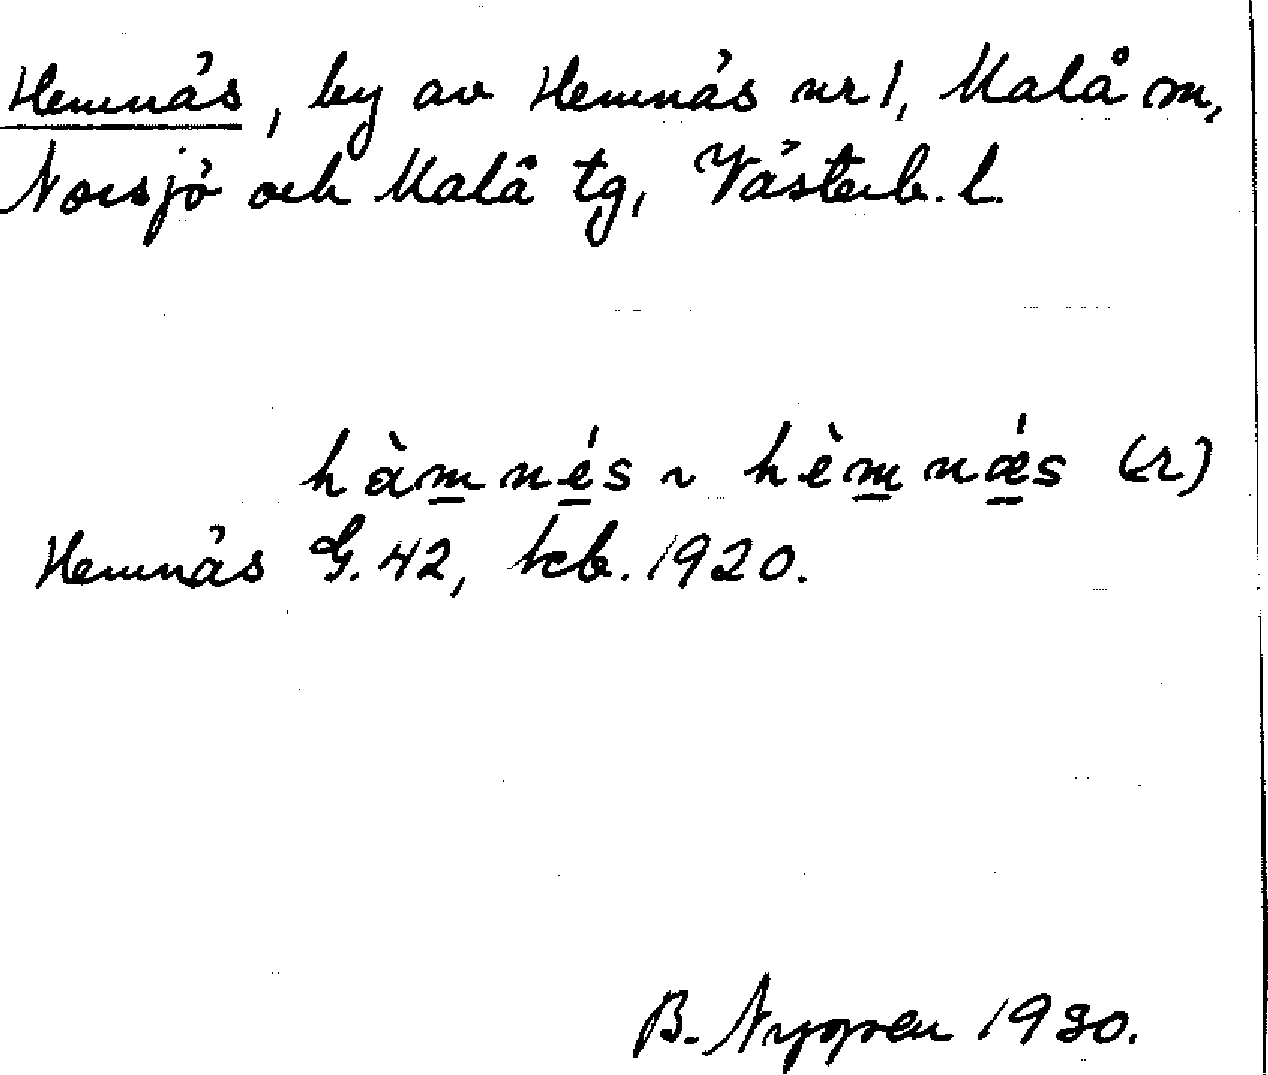 Hemnäs, by av Hemnäs nr 1, Malå m,
Norsjö och Malå tg, Västerb. l.
hàm̲né̲s ~ hèm̲nǽ̲s (r)
Hemnäs G. 42, kb. 1920.
B. Nygren 1930.